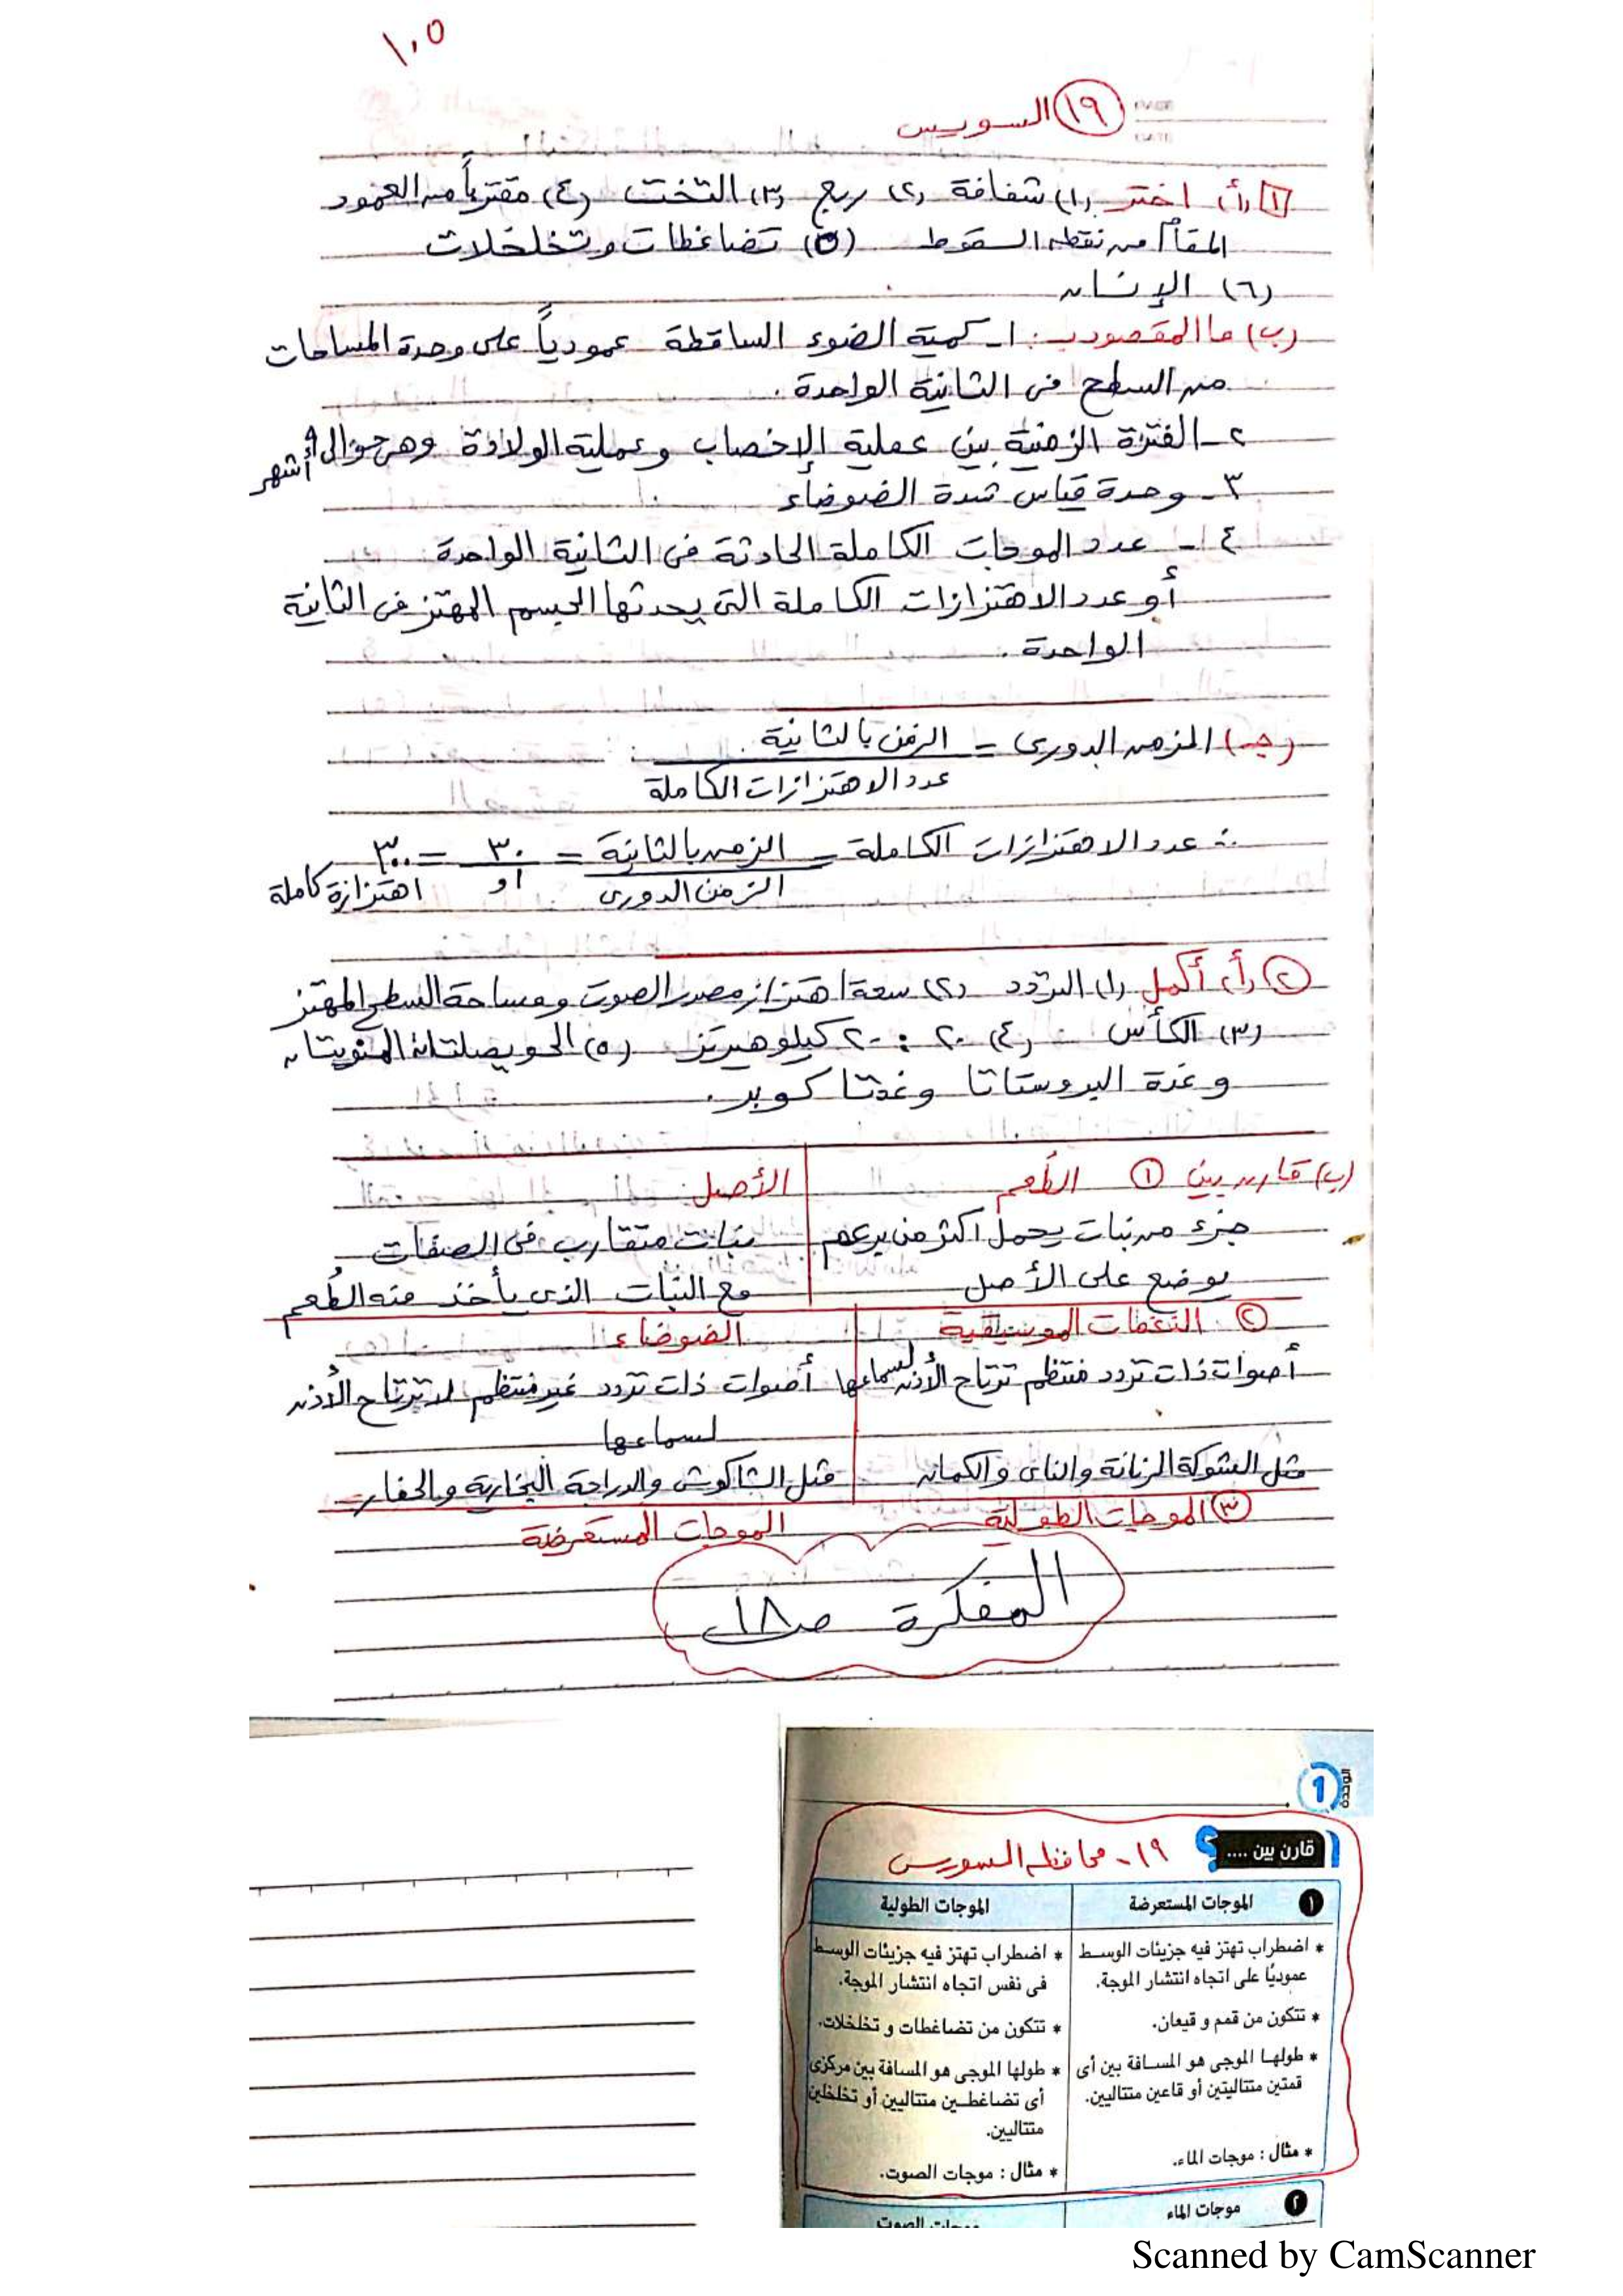 ١٠٥
(١٩) السويس
[١] (أ) اختر (١) شفافة (٢) ربع (٣) التخت (٤) مقترباً من العمود
المقام من نقطة السقوط (٥) تضاغطات وتخلخلات
(٦) الإنسان
(ب) ما المقصود بـ: ١- كمية الضوء الساقطة عمودياً على وحدة المساحات
من السطح فى الثانية الواحدة.
٢- الفترة الزمنية بين عملية الإخصاب وعملية الولادة وهى حوالى ٩ أشهر
٣- وحدة قياس شدة الضوضاء
٤- عدد الموجات الكاملة الحادثة فى الثانية الواحدة
أو عدد الاهتزازات الكاملة التى يحدثها الجسم المهتز فى الثانية
الواحدة.
(جـ) الزمن الدورى = الزمن بالثانية
عدد الاهتزازات الكاملة
∴ عدد الاهتزازات الكاملة = الزمن بالثانية = ٣٠ = ٣٠٠
الزمن الدورى ٠,١ اهتزازة كاملة
(٢) (أ) أكمل (١) التردد (٢) سعة اهتزاز مصدر الصوت ومساحة السطح المهتز
(٣) الكأس (٤) ٢٠ : ٢٠ كيلو هيرتز (٥) الحويصلتان المنويتان
وغدة البروستاتا وغدتا كوبر.
(ب) قارن بين (١) الطُعم الأصل
جزء من نبات يحمل أكثر من برعم نبات متقارب فى الصفات
يوضع على الأصل مع النبات الذى يأخذ منه الطُعم
(٢) النغمات الموسيقية الضوضاء
أصوات ذات تردد منتظم ترتاح الأذن لسماعها أصوات ذات تردد غير منتظم لا ترتاح الأذن
لسماعها
مثل الشوكة الرنانة والناى والكمان مثل الشاكوش والدراجة البخارية والحفار
(٣) الموجات الطولية الموجات المستعرضة
المفكرة صـ ١٨
الوحدة 1
قارن بين .... ؟ ١٩- محافظة السويس
١ الموجات المستعرضة الموجات الطولية
* اضطراب تهتز فيه جزيئات الوسط * اضطراب تهتز فيه جزيئات الوسط
عموديًا على اتجاه انتشار الموجة. فى نفس اتجاه انتشار الموجة.
* تتكون من قمم و قيعان. * تتكون من تضاغطات و تخلخلات.
* طولها الموجى هو المسافة بين أى * طولها الموجى هو المسافة بين مركزى
قمتين متتاليتين أو قاعين متتاليين. أى تضاغطين متتاليين أو تخلخلين
متتاليين.
* مثال : موجات الماء. * مثال : موجات الصوت.
٢ موجات الماء موجات الصوت
Scanned by CamScanner